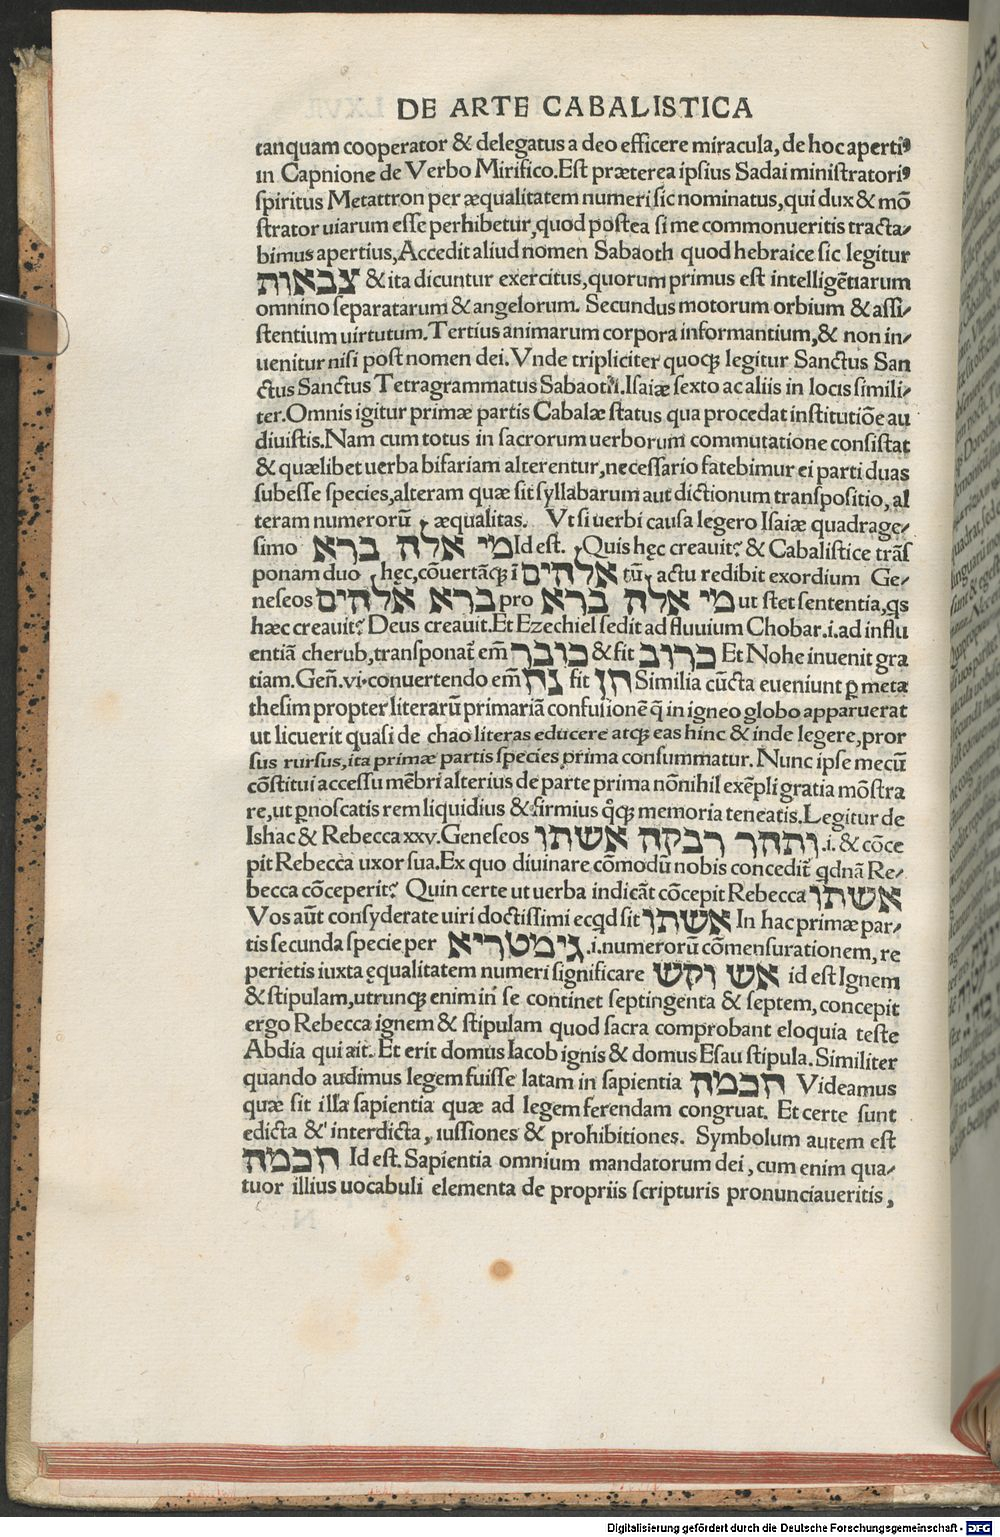 DE ARTE CABALISTICA
tanquam cooperator & delegatus a deo efficere miracula, de hoc apertiꝰ
in Capnione de Verbo Mirifico. Est præterea ipsius Sadai ministratoriꝰ
spiritus Metattron per æqualitatem numeri sic nominatus, qui dux & mō
strator uiarum esse perhibetur, quod postea si me commonueritis tracta-
bimus apertius, Accedit aliud nomen Sabaoth quod hebraice sic legitur
צבאות & ita dicuntur exercitus, quorum primus est intelligētiarum
omnino separatarum & angelorum. Secundus motorum orbium & assi-
stentium uirtutum. Tertius animarum corpora informantium, & non in-
uenitur nisi post nomen dei. Vnde tripliciter quoqꝫ legitur Sanctus San
ctus Sanctus Tetragrammatus Sabaoth. Isaiæ sexto ac aliis in locis simili-
ter. Omnis igitur primæ partis Cabalæ status qua procedat institutiōe au
diuistis. Nam cum totus in sacrorum uerborum commutatione consistat
& quælibet uerba bifariam alterentur, necessario fatebimur ei parti duas
subesse species, alteram quæ sit syllabarum aut dictionum transpositio, al
teram numerorū, æqualitas. Vt si uerbi causa legero Isaiæ quadrage-
simo מי אלה ברא Id est. Quis hęc creauit? & Cabalistice trās
ponam duo, hęc, cōuertāqꝫ ī אלהים tū, actu redibit exordium Ge-
neseos ברא אלהים pro מי אלה ברא ut stet sententia, qs
hæc creauit? Deus creauit. Et Ezechiel sedit ad fluuium Chobar. i. ad influ
entiā cherub, transponat̄ em̄ כובר & fit כרוב Et Nohe inuenit gra
tiam. Geñ. vi. conuertendo em̄ נח fit חן Similia cūcta eueniunt ꝑ meta
thesim propter literarū primariā confusionē q̄ in igneo globo apparuerat
ut licuerit quasi de chao literas educere atqꝫ eas hinc & inde legere, pror
sus rursus, ita primæ partis species prima consummatur. Nunc ipse mecū
cōstitui accessu mēbri alterius de parte prima nōnihil exēpli gratia mōstra
re, ut ꝑnoscatis rem liquidius & firmius q̊qꝫ memoria teneatis. Legitur de
Ishac & Rebecca xxv. Geneseos ותהר רבקה אשתו .i. & cōce
pit Rebecca uxor sua. Ex quo diuinare cōmodū nobis concedit̄ qdnā Re-
becca cōceperit? Quin certe ut uerba indicāt cōcepit Rebecca אשתו
Vos aūt consyderate uiri doctissimi ecqd sit אשתו In hac primæ par-
tis secunda specie per גימטריא .i. numerorū cōmensurationem, re
perietis iuxta ęqualitatem numeri significare אש וקש id est Ignem
& stipulam, utrunqꝫ enim in se continet septingenta & septem, concepit
ergo Rebecca ignem & stipulam quod sacra comprobant eloquia teste
Abdia qui ait. Et erit domus Iacob ignis & domus Esau stipula. Similiter
quando audimus legem fuisse latam in sapientia חכמה Videamus
quæ sit illa sapientia quæ ad legem ferendam congruat. Et certe sunt
edicta & interdicta, iussiones & prohibitiones. Symbolum autem est
חכמה Id est. Sapientia omnium mandatorum dei, cum enim qua-
tuor illius uocabuli elementa de propriis scripturis pronunciaueritis,
Digitalisierung gefördert durch die Deutsche Forschungsgemeinschaft - DFG